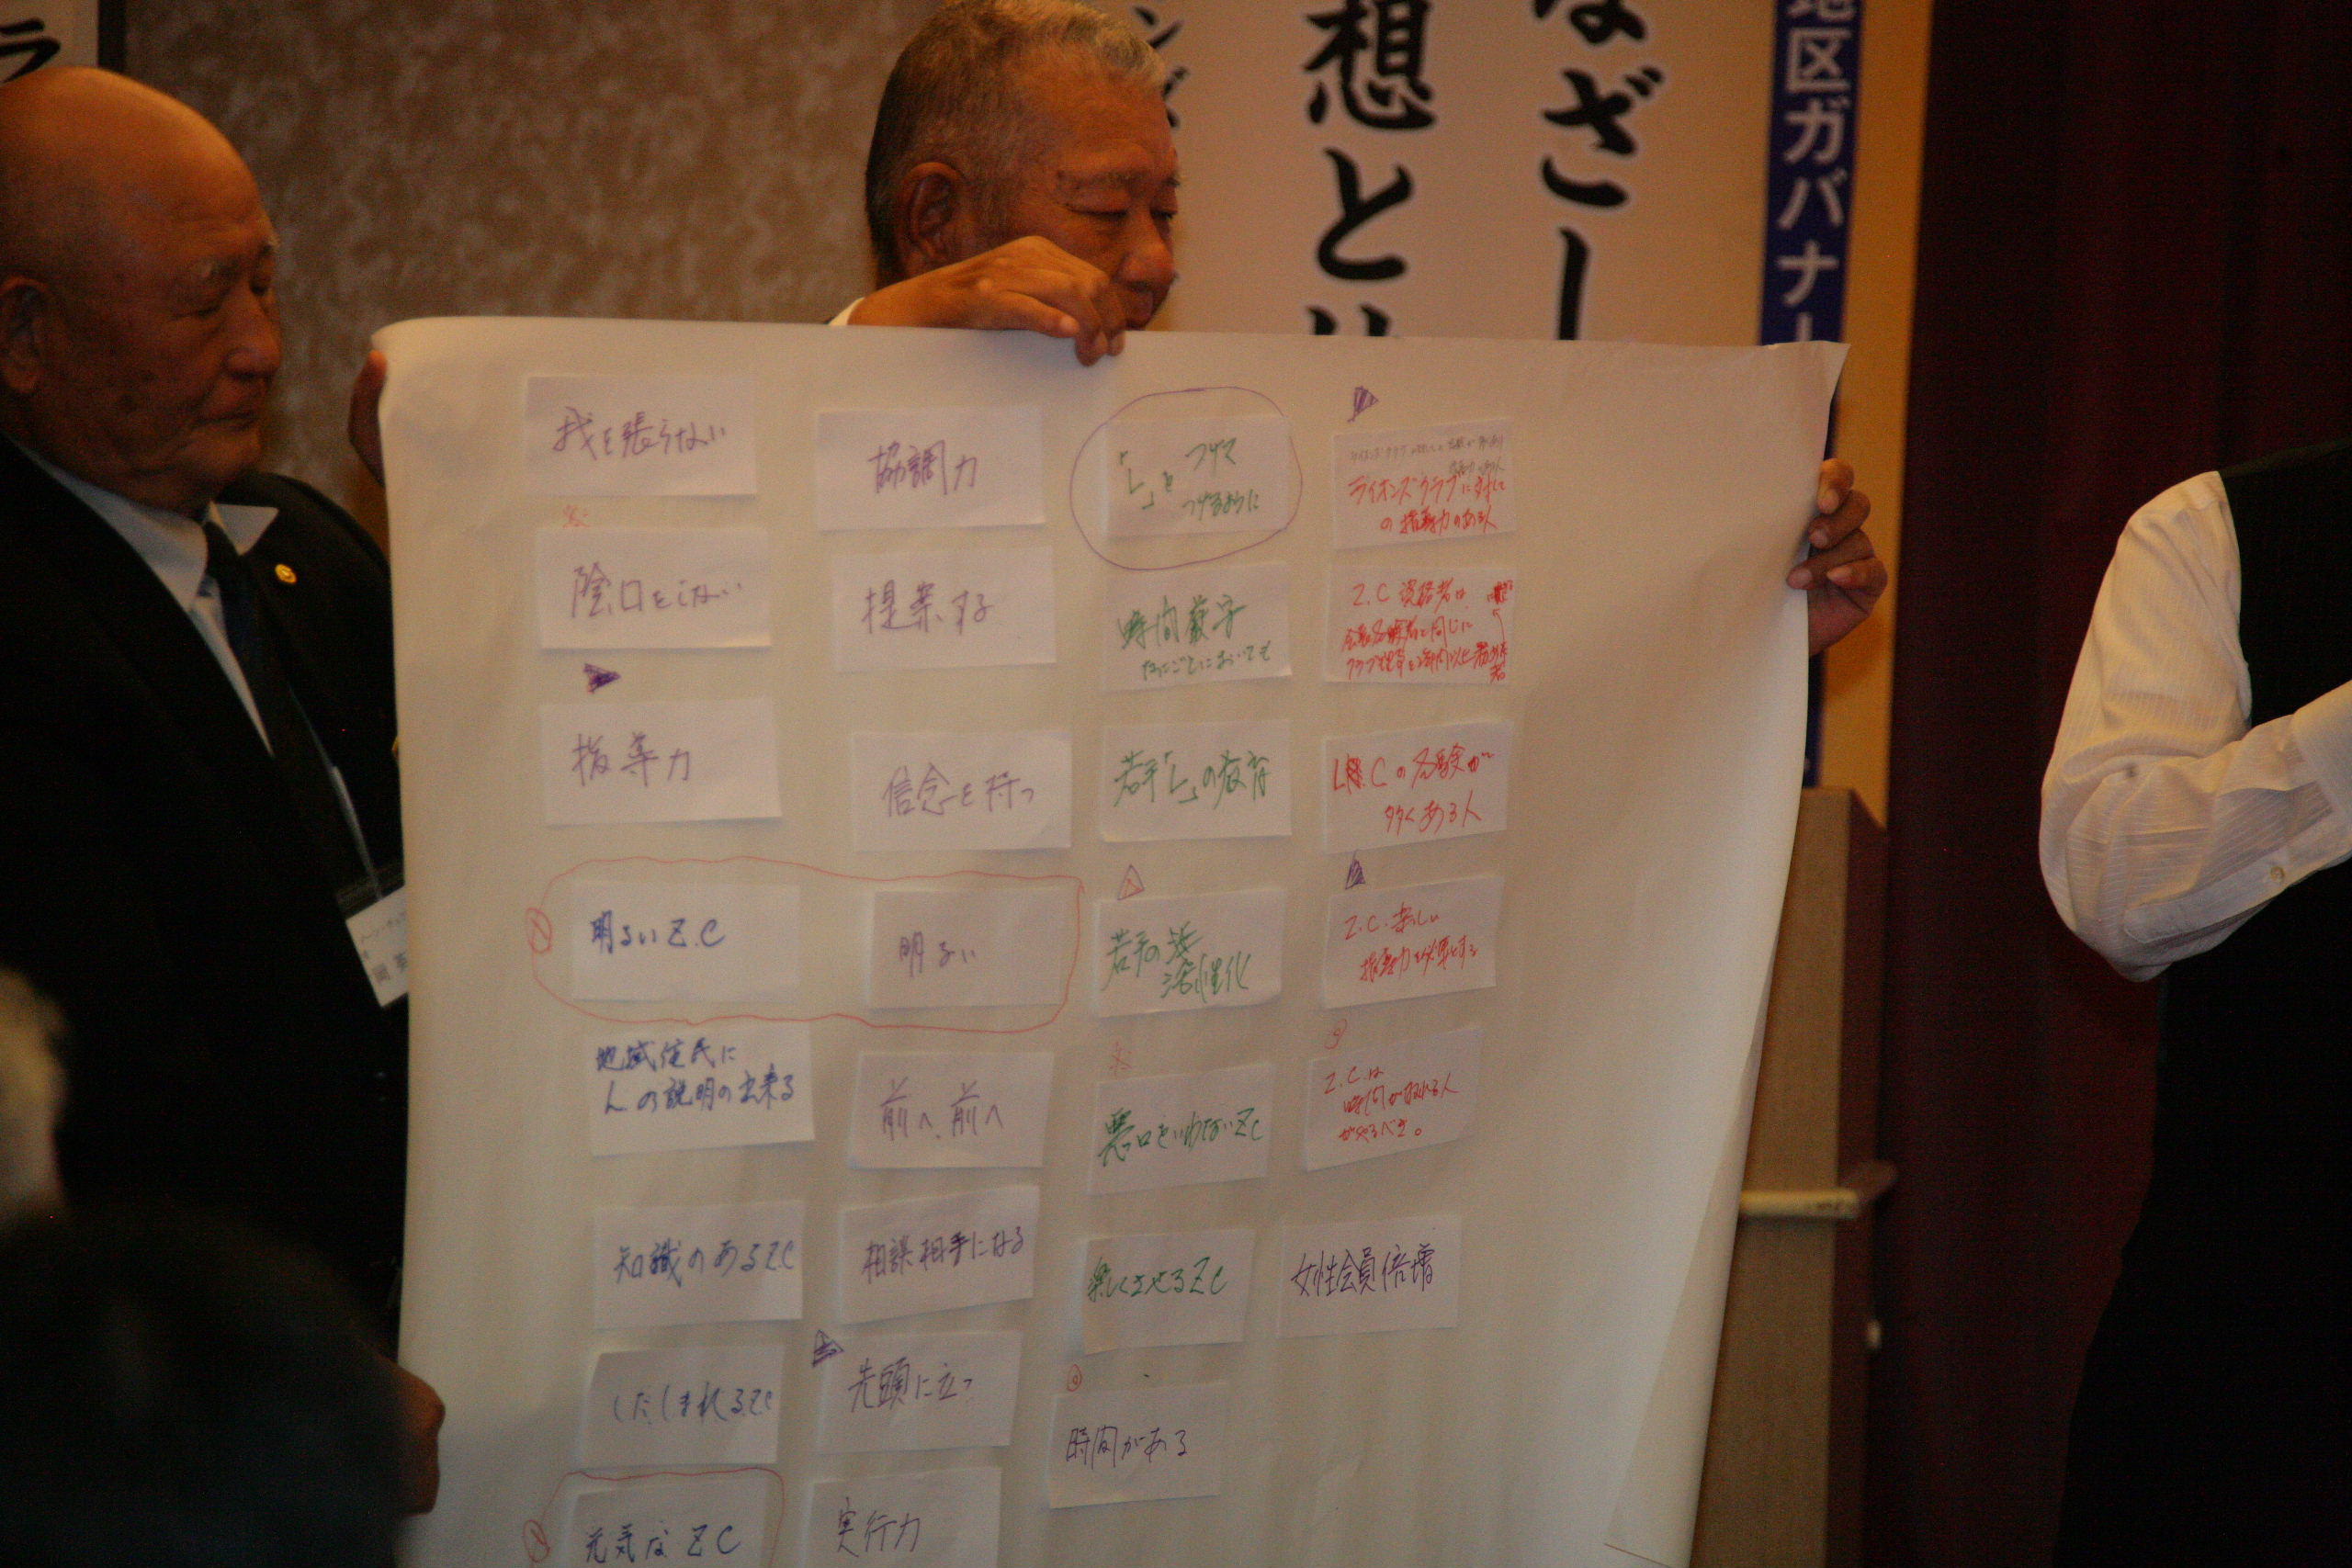 ラ
ンズ
想と
なざし
地区ガバナー
我を張らない
陰口をしない
指導力
明るいZ.C
地域住民に
Lの説明の出来る
知識のあるZC
したしまれるZC
元気なZC
協調力
提案する
信念を持つ
明るい
前へ前へ
相談相手になる
先頭に立つ
実行力
「L」を つげて
つげるように
時間厳守
なにごとにおいても
若手「L」の教育
若手の
活性化
悪口をいわないZC
楽しくさせるZC
時間がある
ライオンズクラブに対して
の指導力のある人
Z.C 資格者は
L.Cの経験が
多くある人
Z.C.楽しい
指導力を必要とする
Z.C.は
時間が取れる人
がやるべき。
女性会員倍増